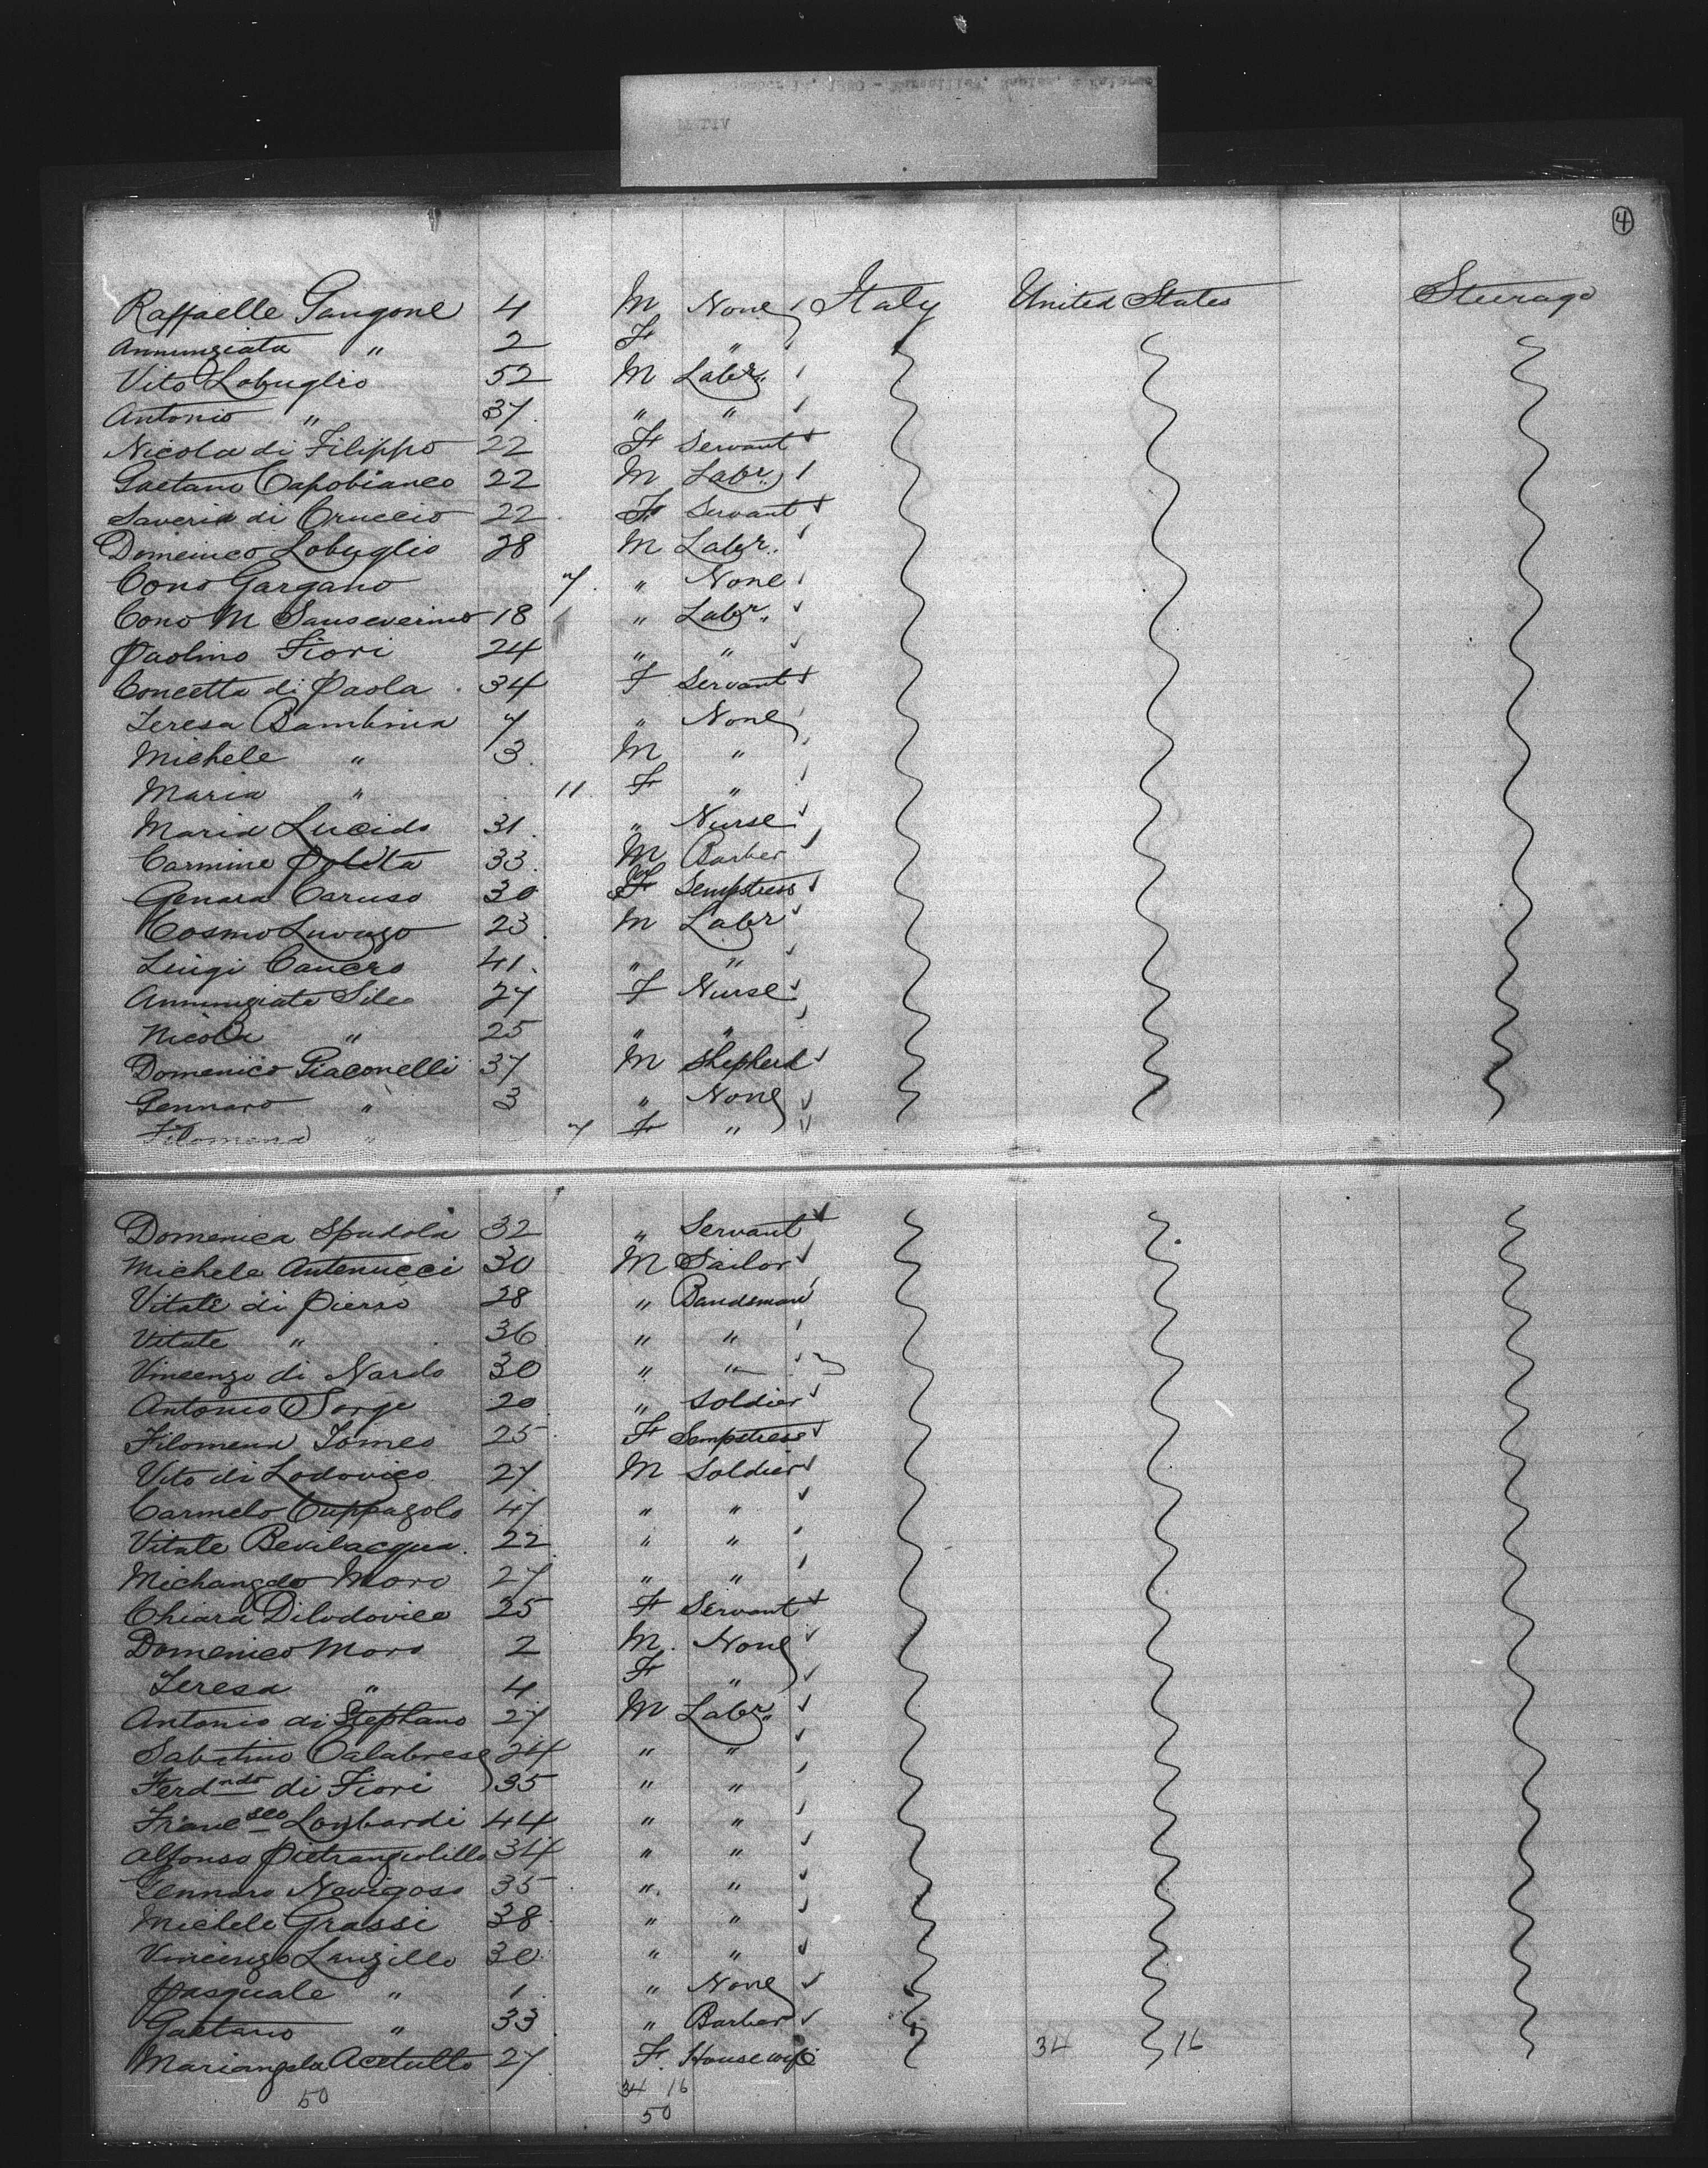 4
Raffaelle Gangone 4 M None Italy United States Steerage
Annunziata " 2 F "
Vito Lobuglio 52 M Labr.
Antonio " 37 " "
Nicola di Filippo 22 F Servant
Gaetano Capobianco 22 M Labr.
Saveria di Cruccio 22 F Servant
Domenico Lobuglio 28 M Labr.
Cono Gargano 7 " None
Cono M Sanseverino 18 " Labr.
Paolino Fiori 24 " "
Concetta di Paola 34 F Servant
Teresa Bambina 7 " None
Michele " 3 M "
Maria " 11 F "
Maria Lucido 31 " Nurse
Carmine Polita 33 M Barber
Genara Caruso 30 F Sempstress
Cosmo 23 M Labr
Luigi Cancro 41 " "
Annunziata Sileo 27 F Nurse
Nicola " 25 " "
Domenico Giaconelli 37 M Shepherd
Gennaro " 3 " None
Filomena " 7 F "
Domenica Spadola 32 " Servant
Michele Antenucci 30 M Sailor
Vitale di Pierro 28 " Bandsman
Vitale " 36 " "
Vincenzo di Nardo 30 " "
Antonio Sorge 20 " Soldier
Filomena Tomeo 25 F Sempstress
Vito di Lodovico 27 M Soldier
Carmelo Cuppagolo 47 " "
Vitale Bevilacqua 22 " "
Michangelo Moro 27 " "
Chiara Dilodovico 25 F Servant
Domenico Moro 2 M None
Teresa " 4 F "
Antonio di Stephano 27 M Labr.
Sabatino Calabrese 24 " "
Ferdndo di Fiori 35 " "
Francsco Lombardi 44 " "
Alfonso Pietrangiolillo 34 " "
Gennaro Navigoso 35 " "
Michele Grassi 38 " "
Vincenzo Lanzillo 30 " "
Pasquale " 1 " None
Gaetano " 33 " Barber
Mariangela Acetullo 27 F Housewife 34 16
50 34 16
50